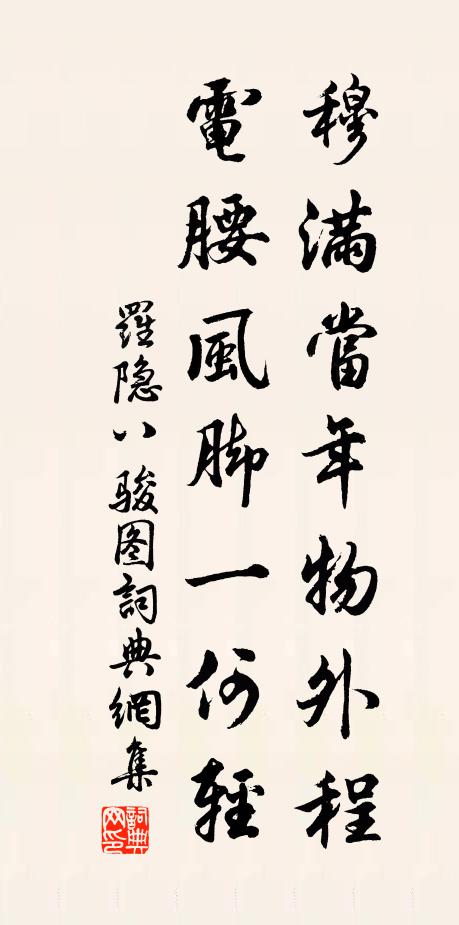 穆滿當年物外程
電腰風脚一何輕
羅隐八駿图詞典網集
詞典网印